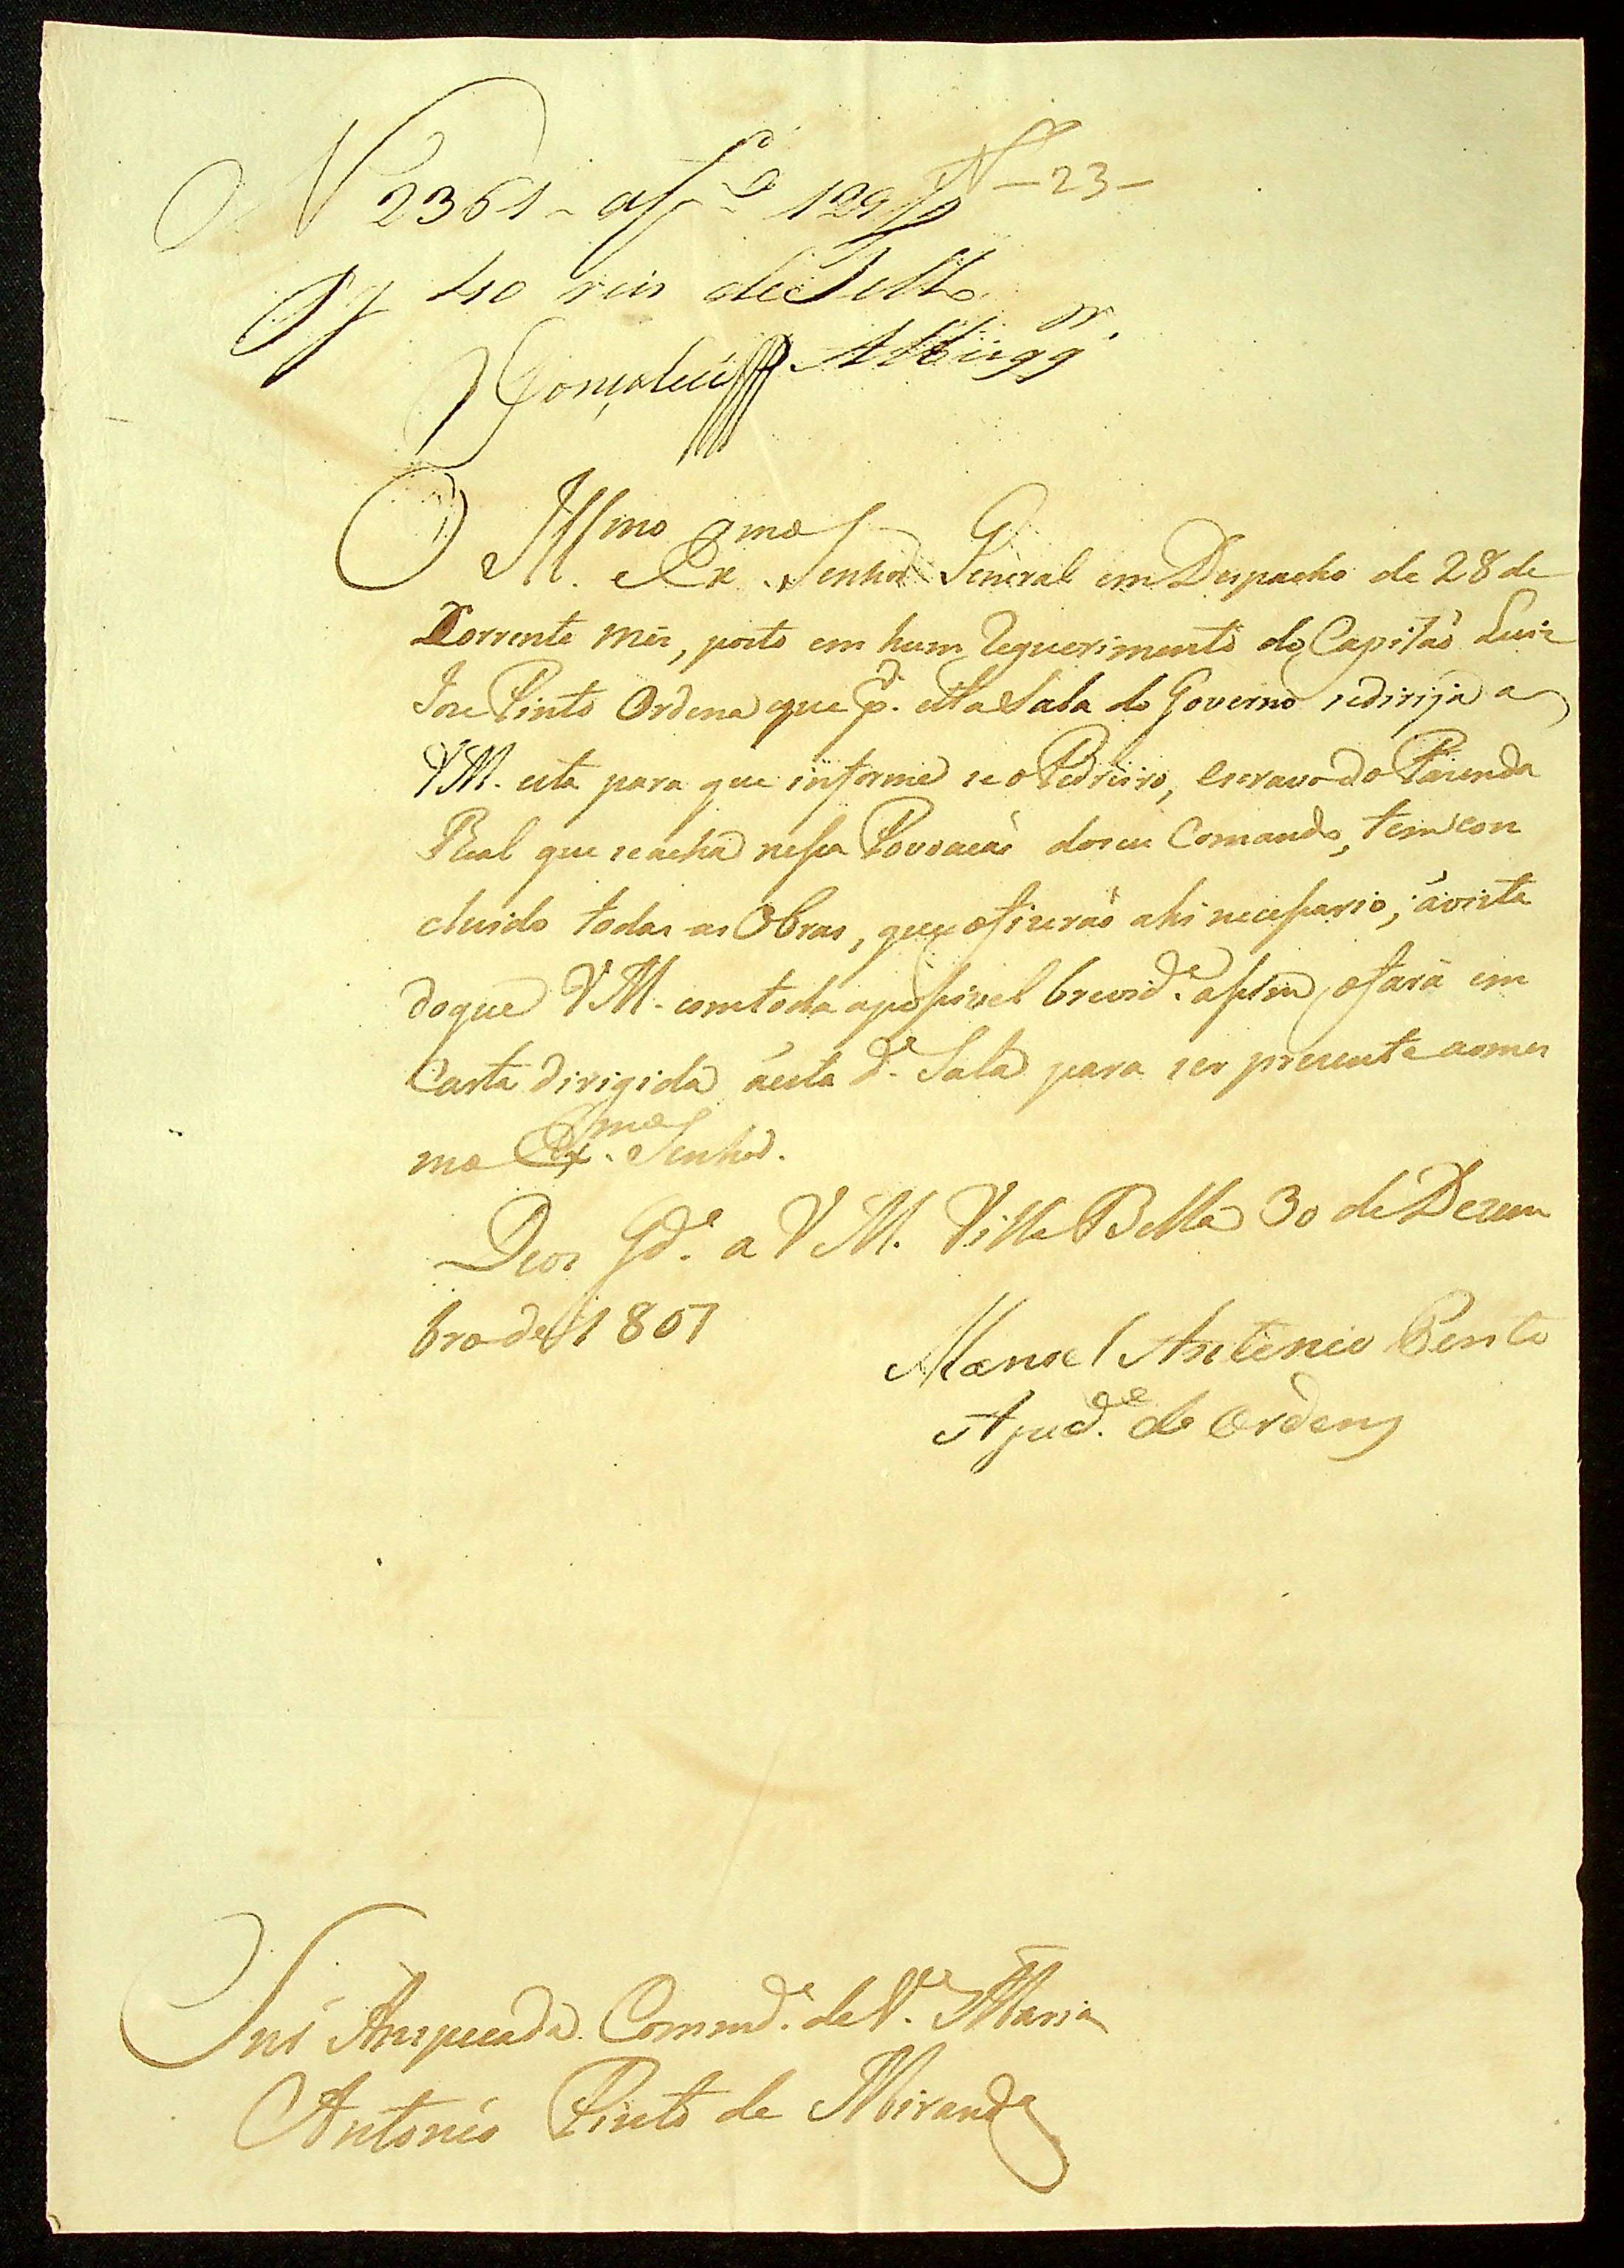 N 2361 - a f.ª 129
N - 23 -
Pg 40 reis de Sello
Gonçalves
O Ill.mo e Ex.mo Senhor General em Despacho de 28 de
Corrente mes, posto em hum Requerimento do Capitaõ Luiz
Joze Pinto Ordena que p.r esta Sala do Governo se dirija a
VM. esta para que informe se o Pedreiro, escravo da Fazenda
Real que se acha nessa Povoacaõ do seu Comando, tem con
cluido todas as Obras, que o fizeraõ ahi necessario; á vista
do que VM. com toda a possivel brevid.e assim o fará em
Carta dirigida á esta d.a Sala para ser prezente ao mes
mo Ex.mo Senhor.
Deos G.de a VM. Villa Bella 30 de Dezem
bro de 1807
Manoel Antonio Pinto
Ajud.e de Ordens
Snr Anspeçada Comm.de de V.a Maria
Antonio Pinto de Miranda